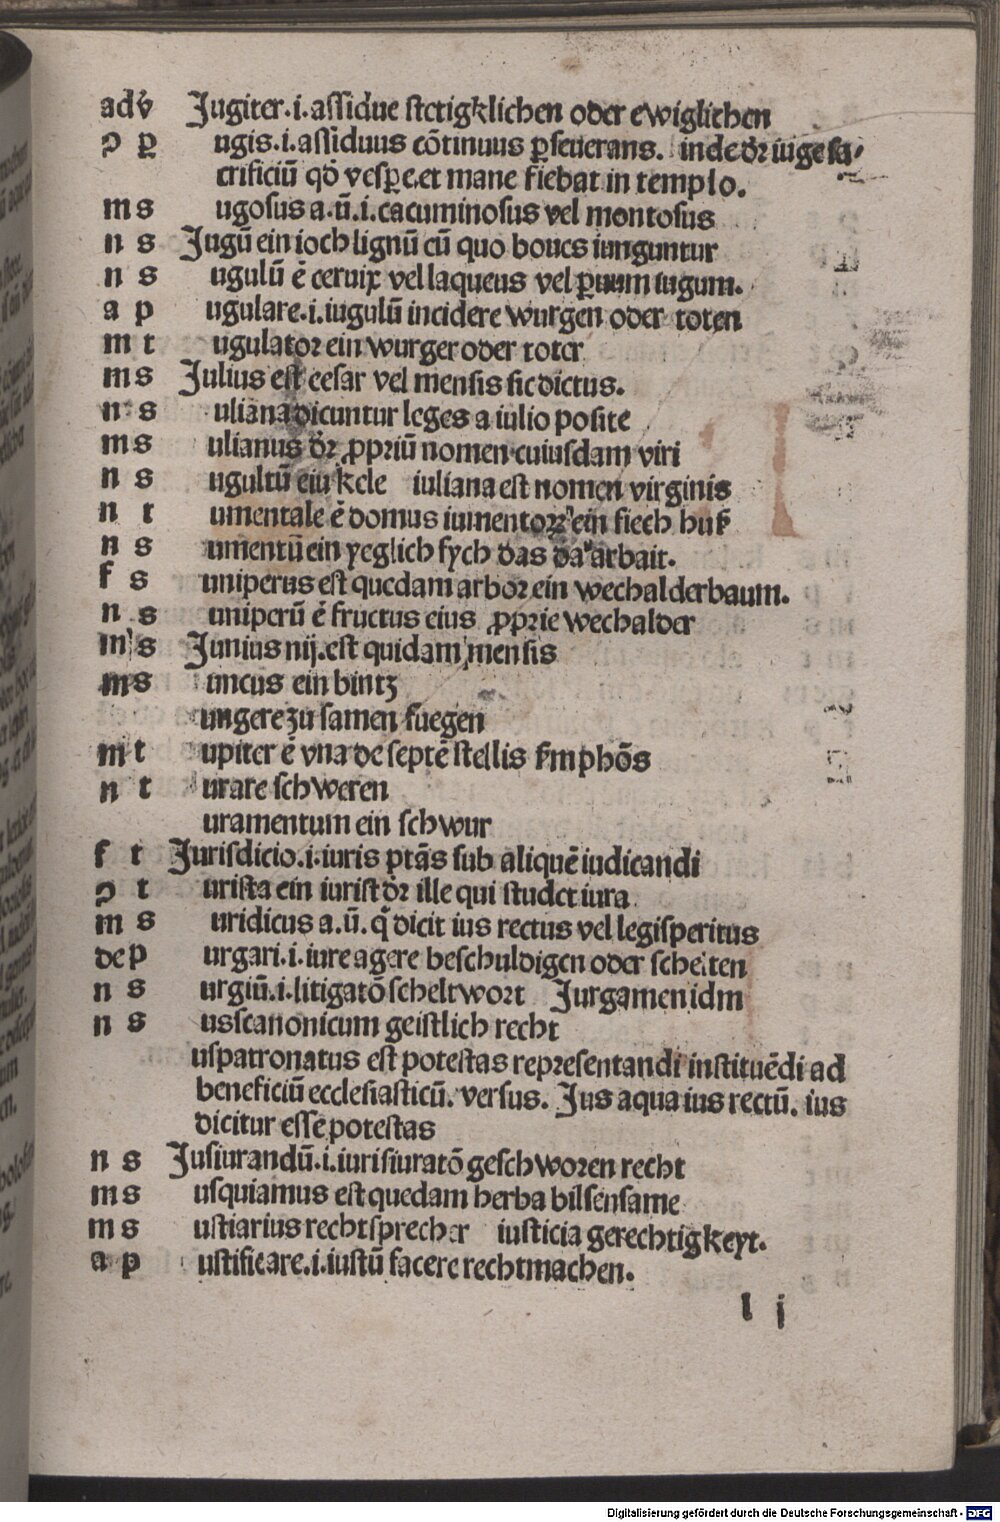 adv̇ Jugiter.i.assidue stetigklichen oder ewiglichen
ꝯ ꝑ ugis.i.assiduus cōtinuus ꝑseuerans. inde dr̄ iuge sa-
crificiū qď vesꝑe.et mane fiebat in templo.
m s ugosus a.ū.i.cacuminosus vel montosus
n s Jugū ein ioch lignū cū quo boues iunguntur
n s ugulū ē ceruix vel laqueus vel ꝑuum iugum.
a p ugulare.i.iugulū incidere wurgen oder toten
m t ugulator ein wurger oder toter
m s Julius est cesar vel mensis sic dictus.
n s uliana dicuntur leges a iulio posite
m s ulianus dr̄ ꝓpriū nomen cuiusdam viri
n s ugultū ein kele iuliana est nomen virginis
n t umentale ē domus iumentoꝝ ein fiech huß
n s umentū ein yeglich fych das da arbait.
f s uniperus est quedam arbor ein wechalderbaum.
n s uniperū ē fructus eius ꝓprie wechalder
m s Junius nij.est quidam mensis
m s uncus ein bintz
ungere zu samen fuegen
m t upiter ē vna de septē stellis fm phōs
n t urare schweren
uramentum ein schwur
f t Jurisdicio.i.iuris ptās sub aliquē iudicandi
ꝯ t urista ein iurist dr̄ ille qui studet iura
m s uridicus a.ū. q̇ dicit ius rectus vel legisperitus
de p urgari.i.iure agere beschuldigen oder schelten
n s urgiū.i.litigatō scheltwort Jurgamen idm
n s usscanonicum geistlich recht
uspatronatus est potestas representandi instituēdi ad
beneficiū ecclesiasticū. versus. Jus aqua ius rectū. ius
dicitur esse potestas
n s Jusiurandū.i.iurisiuratō geschworen recht
m s usquiamus est quedam herba bilsensame
m s ustiarius rechtsprecher iusticia gerechtigkeyt.
a p ustificare.i.iustū facere rechtmachen.
l j
Digitalisierung gefördert durch die Deutsche Forschungsgemeinschaft - DFG